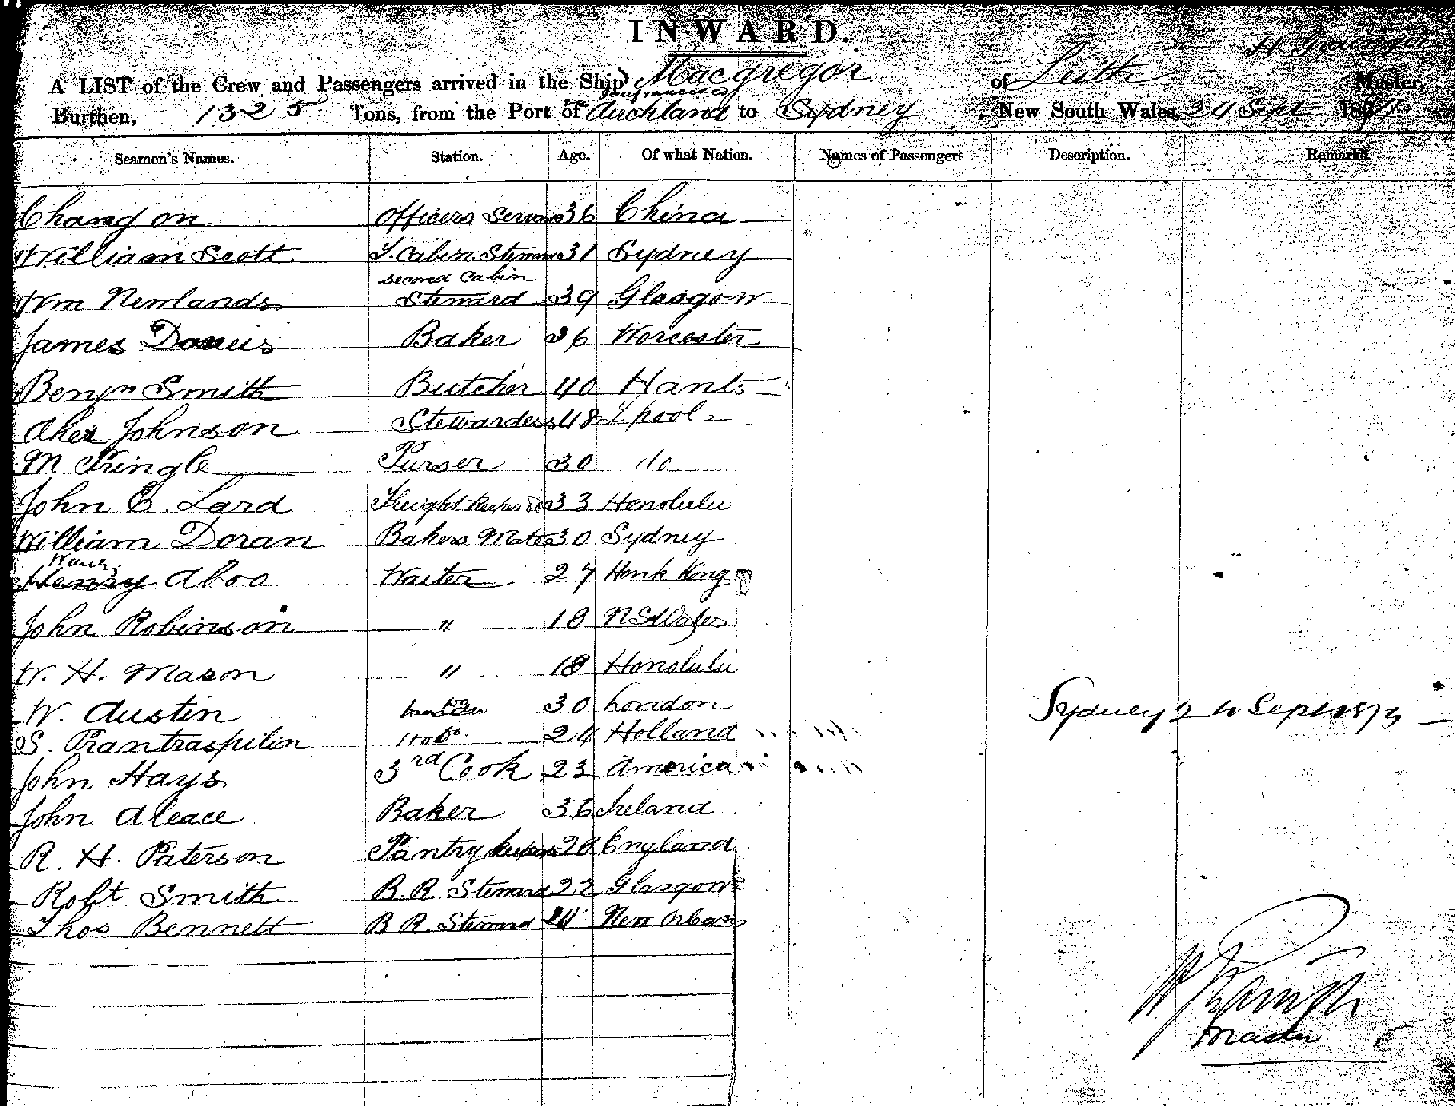 INWARD.
A LIST of the Crew and Passengers arrived in the Ship Macgregor of Leith Master,
Burthen, 1325 Tons, from the Port of Auckland to Sydney, New South Wales, 24 Sept
Seamen's Names. Station. Age. Of what Nation. Names of Passengers Description. Remarks
Chang on Officers Servan 36 China
William Scott S. Cabin Steward 31 Sydney
second Cabin
Wm Newlands Steward 39 Glasgow
James Baker 36 Worcester
Benjn Smith Butcher 40 Hants
Johnson Stewardess 48 L'pool
M Pringle Purser 30 do
John E. Lard Freight 33 Honolulu
William Doran Bakers Mate 30 Sydney
Henry Aboo Waiter 27 Honk Kong
John Robinson " 18 N S Wales
W. H. Mason " 18 Honolulu
W. Austin 30 London
S. 24 Holland
Sydney 24 Sept 1875
John Hays 3rd Cook 23 America
John Baker 36 Ireland
R. H. Paterson Pantry 28 England
Robt Smith B. R. Steward 22 Glasgow
Thos Bennett B R Steward 24 New Orleans
Master